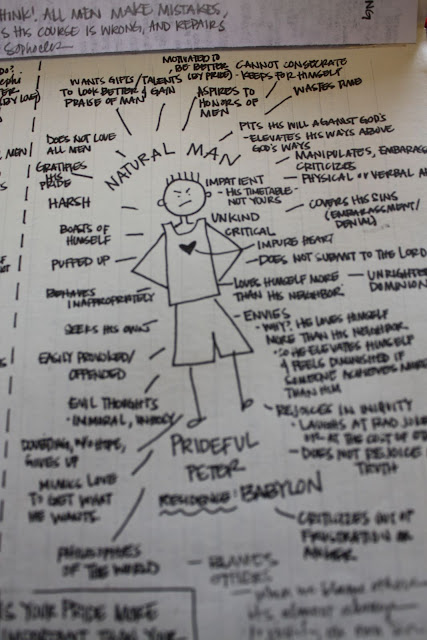 THINK! ALL MEN MAKE MISTAKES,
HIS COURSE IS WRONG, AND REPAIRS
Sophocles
WANTS GIFTS/TALENTS
TO LOOK BETTER & GAIN
PRAISE OF MAN
MOTIVATED TO
BE BETTER
(BY PRIDE)
CANNOT CONSECRATE
- KEEPS FOR HIMSELF
WASTES TIME
ASPIRES TO
HONORS OF
MEN
PITS HIS WILL AGAINST GOD'S
- ELEVATES HIS WAYS ABOVE
GOD'S WAYS
MANIPULATES,
CRITICIZES
PHYSICAL OR VERBAL
COVERS HIS SINS
(EMBARASSMENT/
DENIAL)
NATURAL MAN
DOES NOT LOVE
ALL MEN
GRATIFIES
HIS
PRIDE
HARSH
BOASTS OF
HIMSELF
PUFFED UP
BEHAVES
INAPPROPRIATELY
SEEKS HIS OWN
EASILY PROVOKED/
OFFENDED
EVIL THOUGHTS
- IMMORAL, UNHOLY
DOUBTING, NO HOPE,
GIVES UP
MIMICS LOVE
TO GET WHAT
HE WANTS
PHILOSOPHIES
OF THE WORLD
IMPATIENT
- HIS TIMETABLE -
NOT YOURS
UNKIND
CRITICAL
IMPURE HEART
DOES NOT SUBMIT TO THE LORD
LOVES HIMSELF MORE
THAN HIS NEIGHBOR
DOMINION
ENVIES
- WHY? HE LOVES HIMSELF
MORE THAN HIS NEIGHBOR
- SO HE ELEVATES HIMSELF
& FEELS DIMINISHED IF
SOMEONE ACHIEVES MORE
THAN HIM
REJOICES IN INIQUITY
- LAUGHS AT BAD
OR AT THE COST OF
- DOES NOT REJOICE
TRUTH
PRIDEFUL
PETER
RESIDENCE: BABYLON
CRITICIZES OUT OF
FRUSTRATION OR
ANGER
- BLAMES
OTHERS
- when we blame others
its almost always
IS YOUR PRIDE MORE
IMPORTANT THAN YOUR